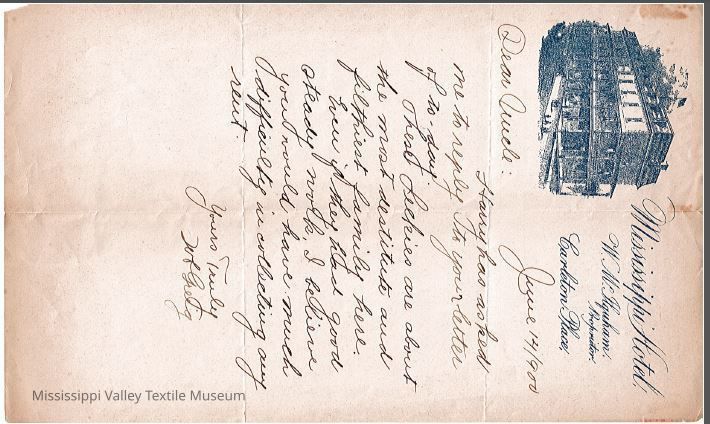 Mississippi Hotel,
W. McIlquham.
Proprietor.
Carleton Place,
June 14/1900
Dear Uncle:
Harry has asked
me to reply to your letter
of to-day.
These are about
the most destitute and
filthiest family here.
Even if they had good
steady work, I believe
you would have much
difficulty in collecting any
rent
Yours Truly
Mississippi Valley Textile Museum